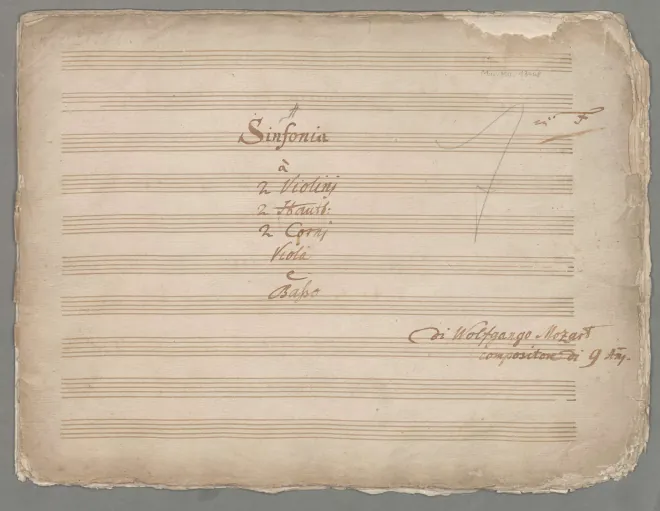 in F
Sinfonia
à
2 Violinj
2 Hautb:
2 Cornj
Viola
e
Baſso
di Wolfgango Mozart
compositore di 9 Anj.